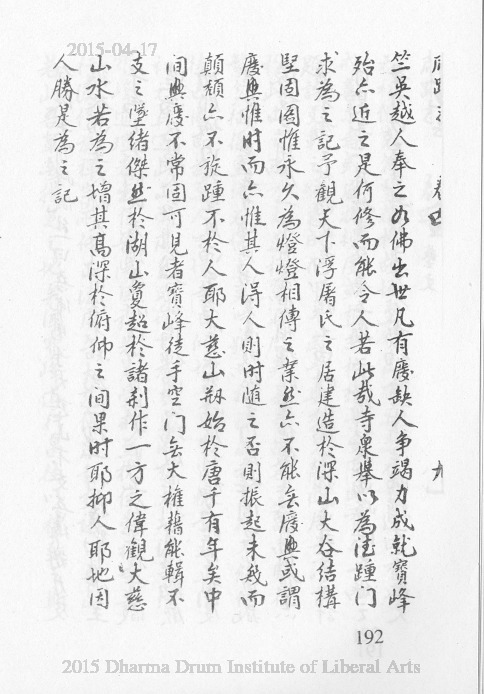 2015-04-17
卷四
九
竺吳越人奉之如佛出世凡有廢缺人争竭力成就寶峰
殆亦近之是何修而能令人若此哉寺衆舉以為德踵门
求為之記予觀天下浮屠氏之居建造於深山大谷结構
堅固圖惟永久為燈燈相傳之業然亦不能無廢興或謂
廢興惟时而亦惟其人得人則时随之否則振起未幾而
顛頹亦不旋踵不於人耶大慈山刱始於唐千有年矣中
间興廢不常固可見者寶峰徒手空门無大權藉能輯不
支之墜绪傑然於湖山敻超於諸刹作一方之偉觀大慈
山水若為之增其髙深於俯仰之间果时耶抑人耶地因
人勝是為之記
192
2015 Dharma Drum Institute of Liberal Arts